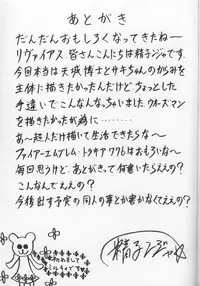 あとがき
だんだんおもしろくなってきたねー
リヴァイアス。皆さんこんにちは精子ンジャです。
今回本当は天城博士とサキちゃんのからみを
主体に描きたかったんだけどちょっとした
手違いでこんなんなっちゃいました。ウォーズマン
を描きたかったが為に………
あ〜超人だけ描いて生活できたらな〜
ファイアーエムブレム・トラキア776はおもろいな〜
毎回思うけど、あとがきって何書いたらええの?
こんなんでええの?
今後出す予定の同人の事とか書かなくてええの?
精子ンジャ